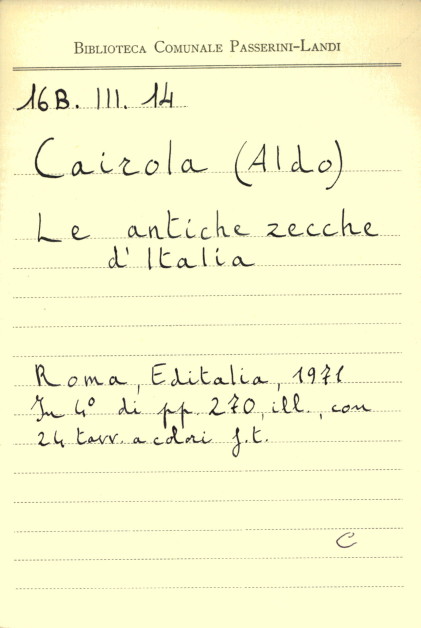 BIBLIOTECA COMUNALE PASSERINI-LANDI
16B. III. 14
Cairola (Aldo)
Le antiche zecche
d'Italia
Roma, Editalia, 1971
In 4° di pp. 270, ill., con
24 tavv. a colori f.t.
C